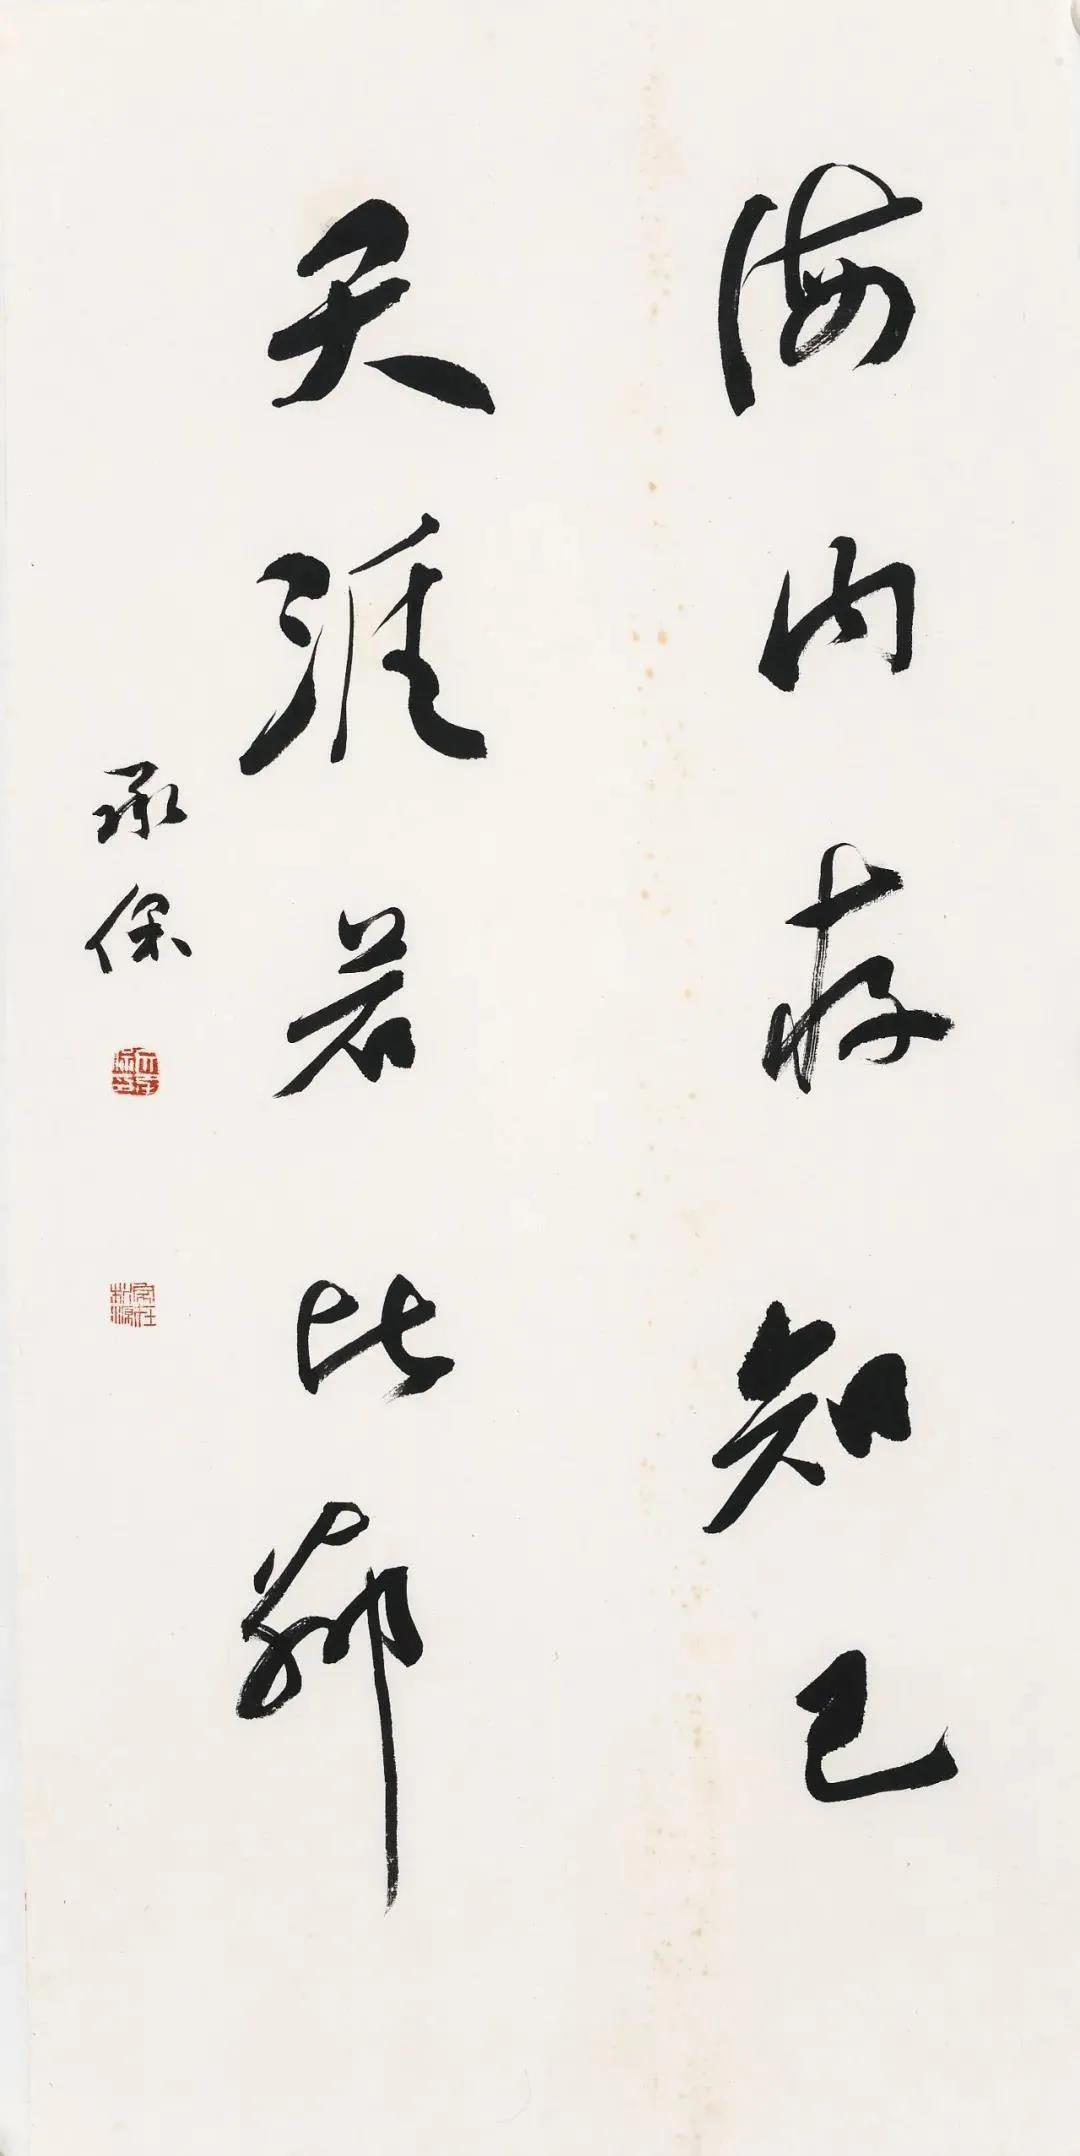 海内存知己
天涯若比邻
承保